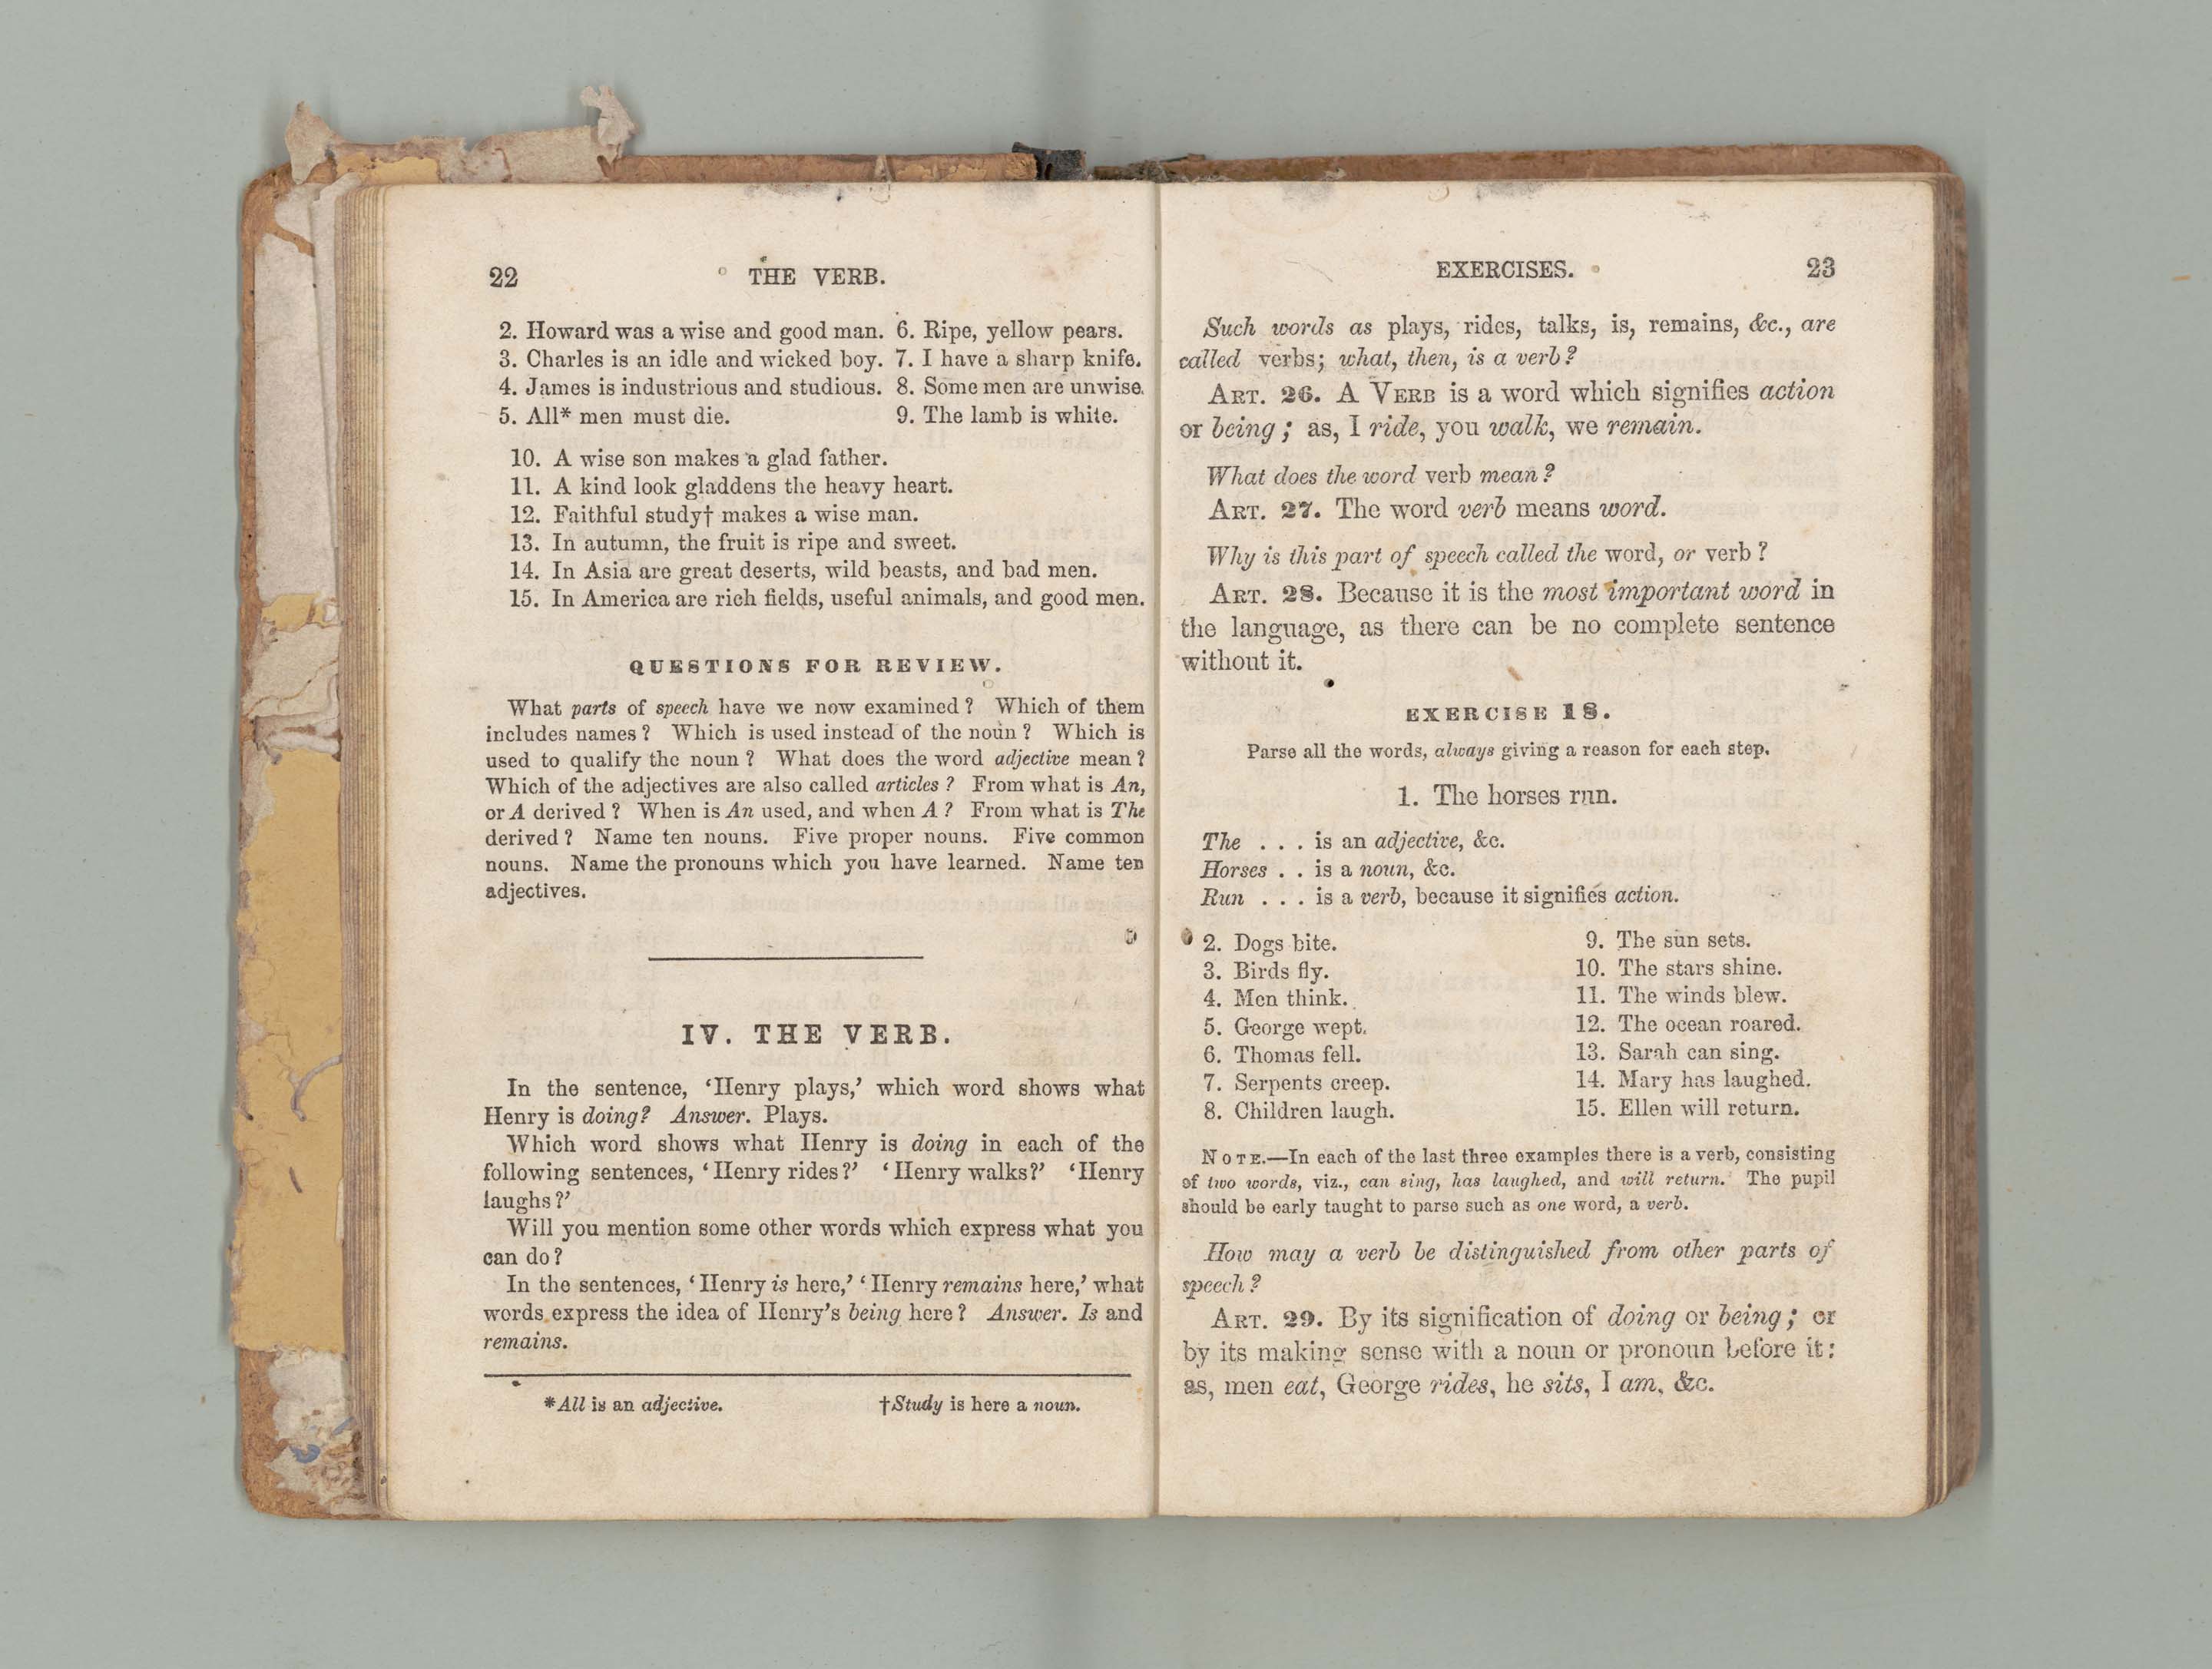 22 THE VERB.
2. Howard was a wise and good man. 6. Ripe, yellow pears.
3. Charles is an idle and wicked boy. 7. I have a sharp knife.
4. James is industrious and studious. 8. Some men are unwise.
5. All* men must die. 9. The lamb is white.
10. A wise son makes a glad father.
11. A kind look gladdens the heavy heart.
12. Faithful study† makes a wise man.
13. In autumn, the fruit is ripe and sweet.
14. In Asia are great deserts, wild beasts, and bad men.
15. In America are rich fields, useful animals, and good men.
QUESTIONS FOR REVIEW.
What parts of speech have we now examined? Which of them
includes names? Which is used instead of the noun? Which is
used to qualify the noun? What does the word adjective mean?
Which of the adjectives are also called articles? From what is An,
or A derived? When is An used, and when A? From what is The
derived? Name ten nouns. Five proper nouns. Five common
nouns. Name the pronouns which you have learned. Name ten
adjectives.
IV. THE VERB.
In the sentence, ‘Henry plays,’ which word shows what
Henry is doing? Answer. Plays.
Which word shows what Henry is doing in each of the
following sentences, ‘Henry rides?’ ‘Henry walks?’ ‘Henry
laughs?’
Will you mention some other words which express what you
can do?
In the sentences, ‘Henry is here,’ ‘Henry remains here,’ what
words express the idea of Henry’s being here? Answer. Is and
remains.
*All is an adjective. †Study is here a noun.
EXERCISES. 23
Such words as plays, rides, talks, is, remains, &c., are
called verbs; what, then, is a verb?
ART. 26. A VERB is a word which signifies action
or being; as, I ride, you walk, we remain.
What does the word verb mean?
ART. 27. The word verb means word.
Why is this part of speech called the word, or verb?
ART. 28. Because it is the most important word in
the language, as there can be no complete sentence
without it.
EXERCISE 18.
Parse all the words, always giving a reason for each step.
1. The horses run.
The . . . is an adjective, &c.
Horses . . is a noun, &c.
Run . . . is a verb, because it signifies action.
2. Dogs bite. 9. The sun sets.
3. Birds fly. 10. The stars shine.
4. Men think. 11. The winds blew.
5. George wept. 12. The ocean roared.
6. Thomas fell. 13. Sarah can sing.
7. Serpents creep. 14. Mary has laughed.
8. Children laugh. 15. Ellen will return.
NOTE.—In each of the last three examples there is a verb, consisting
of two words, viz., can sing, has laughed, and will return. The pupil
should be early taught to parse such as one word, a verb.
How may a verb be distinguished from other parts of
speech?
ART. 29. By its signification of doing or being; or
by its making sense with a noun or pronoun before it:
as, men eat, George rides, he sits, I am, &c.